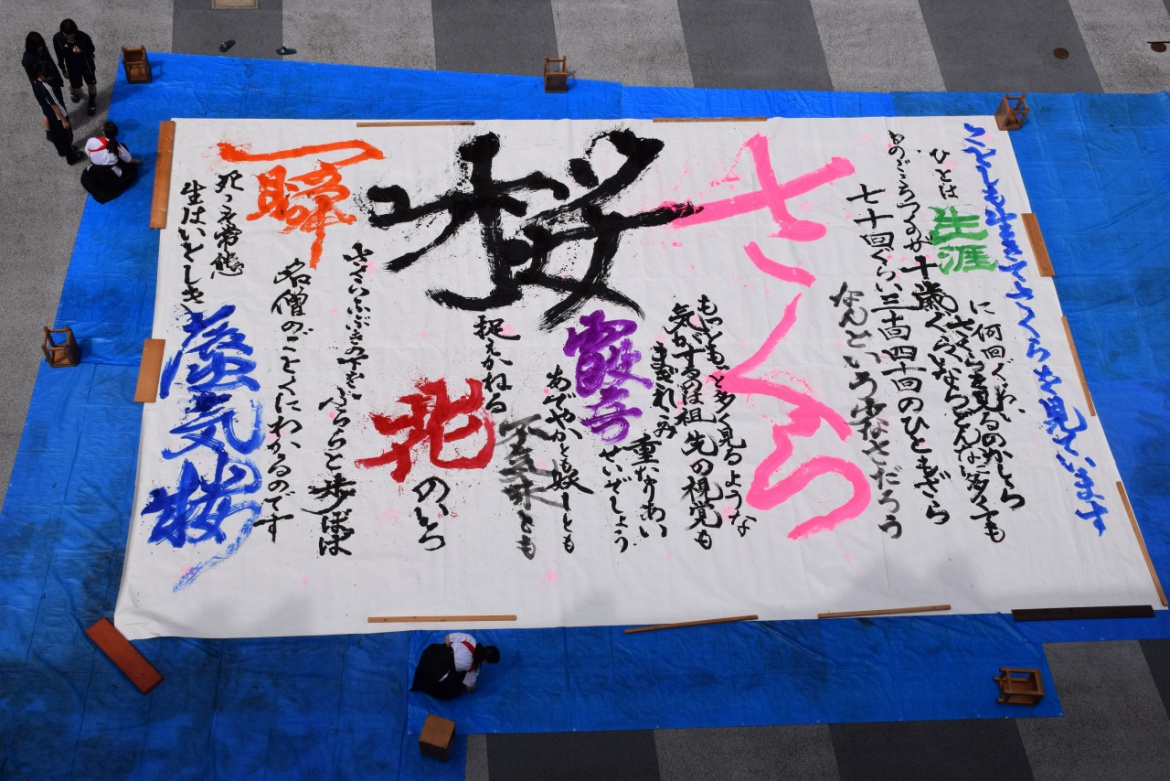 ことしも生きてさくらを見ています
ひとは生涯に何回ぐらい
さくらを見るのかしら
ものごころつくのが十歳ぐらいならどんなに多くても
七十回ぐらい三十回四十回のひともざら
なんという少なさだろう
さくら
もっともっと多く見るような
気がするのは祖先の視覚も
まぎれこみ重なりあい
霞 せいでしょう
桜
あでやかとも妖しとも
不気味とも
捉えかねる
花のいろ
さくらふぶきの下をふららと歩けば
一瞬
名僧のごとくにわかるのです
死こそ常態
生はいとしき
蜃気楼